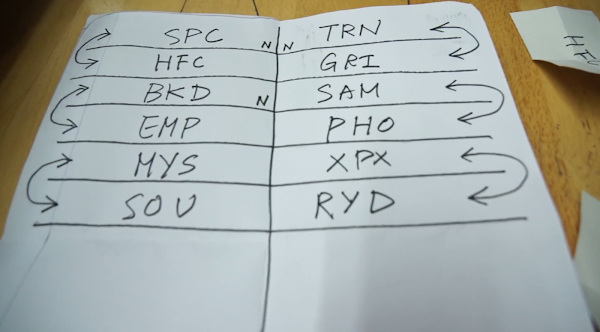 SPC N N TRN
HFC GRI
BKD N SAM
EMP PHO
MYS XPX
SOU RYD